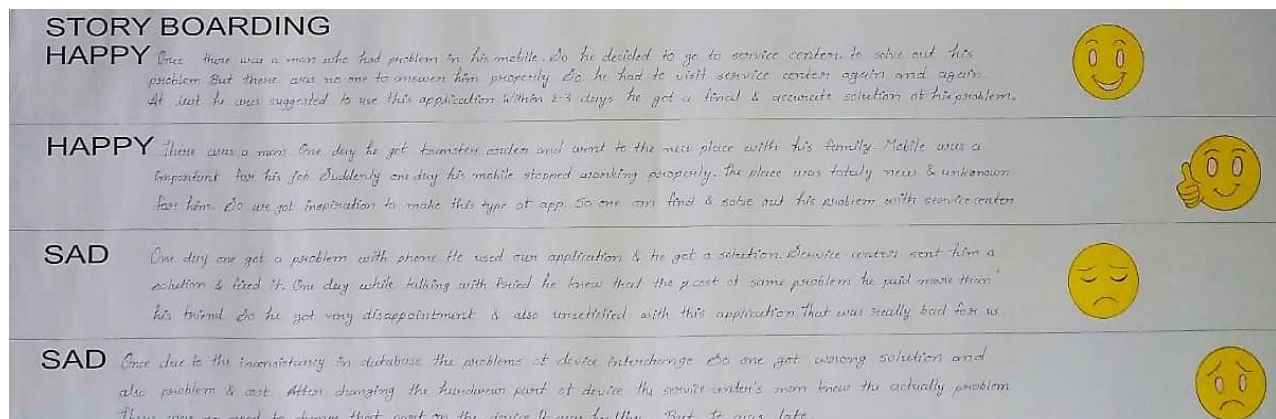 STORY BOARDING
HAPPY Once there was a man who had problem in his mobile. So he decided to go to service center to solve out his
problem. But there was no one to answer him properly So he had to visit service center again and again.
At last he was suggested to use this application Within 2-3 days he got a final & accurate solution of his problem.
HAPPY There was a man One day he got transfer order and went to the new place with his family. Mobile was a
important for his job Suddenly one day his mobile stopped working properly. The place was totaly new & unknown
for him. So we got inspiration to make this type of app. So one can find & solve out his problem with service center
SAD One day one got a problem with phone He used our application & he got a solution. Service center sent him a
solution & fixed it. One day while talking with he knew that the cost of same problem he paid more than
his friend So he got very disappointment & also unsetisfied with this application. That was really bad for us.
SAD Once due to the inconsistancy in database the problems of device interchange So one got wrong solution and
also problem & cost. After changing the part of device the service center's man knew the actually problem
There was no need to change that part on the device It was But It was late.